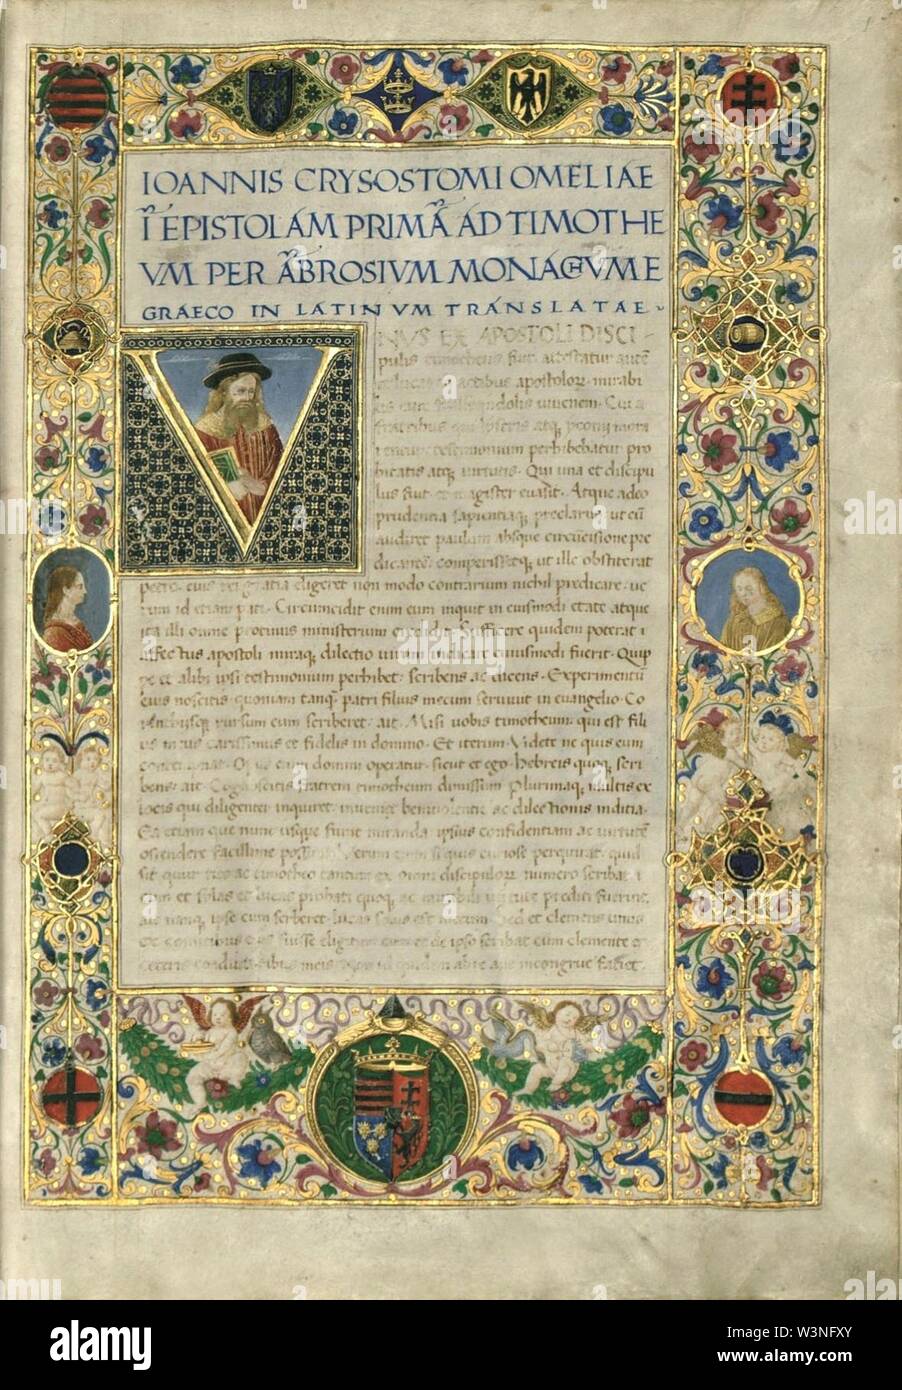 IOANNIS CRYSOSTOMI OMELIAE
Ī EPISTOLAM PRIMĀ AD TIMOTHE
VM PER ĀBROSIVM MONACHVM E
GRAECO IN LATINVM TRANSLATAE
NVS EX APOSTOLI DISCI-
pulis timotheus fuit
apostolor. mirabi
uiuenem. Cui a
fratribus qui
testimonium perhibebatur pro
bitatis atq. uirtutis. Qui una et discipu
lus fuit et magister euasit. Atque adeo
prudentia sapientiaq. preclarus ut cū
audiret paulum absque circūcisione pre
dicantē. comperissetq. ut ille obstiterat
petro. eius rei gratia eligeret non modo contrarium nichil predicare. ue
rum id etiam pati. Circumcidit enim eum inquit in eiusmodi etate atque
ita illi omne protinus ministerium credidit. Sufficere quidem poterat
affectus apostoli miraq. dilectio uirum indicare cuiusmodi fuerit. Quip
pe et alibi ipsi testimonium perhibet. scribens ac dicens. Experimentū
eius noscitis. quoniam tanq. patri filius mecum seruiuit in euangelio. Co
rinthiisq. rursum cum scriberet. ait. Misi uobis timotheum. qui est fili
us meus carissimus et fidelis in domino. Et iterum. Videte ne quis eum
Opus enim domini operatur. sicut et ego. Hebreis quoq. scri
bens. ait. Cognoscitis fratrem timotheum dimissum. Plurimaq. multis ex
locis qui diligenter inquiret. inueniet beniuolentie ac dilectionis inditia.
Ea etiam que nunc usque fiunt miranda ipsius confidentiam ac uirtutē
ostendere facillime possunt. Verum si quis curiose perquirat. quid
sit quur tito ac timotheo tantum ex omni discipulor. numero scribat.
cum et sylas et lucas probati quoq. ac mirabili uirtute prediti fuerint.
ait namq. ipse cum scriberet. lucas solus est mecum. Sed et clemens unus
ex comitibus eius fuisse de ipso scribat cum clemente et
ceteris meis. id quidem abic aue incongrue faciet.
alamy
Image ID: W3NFXY
www.alamy.com